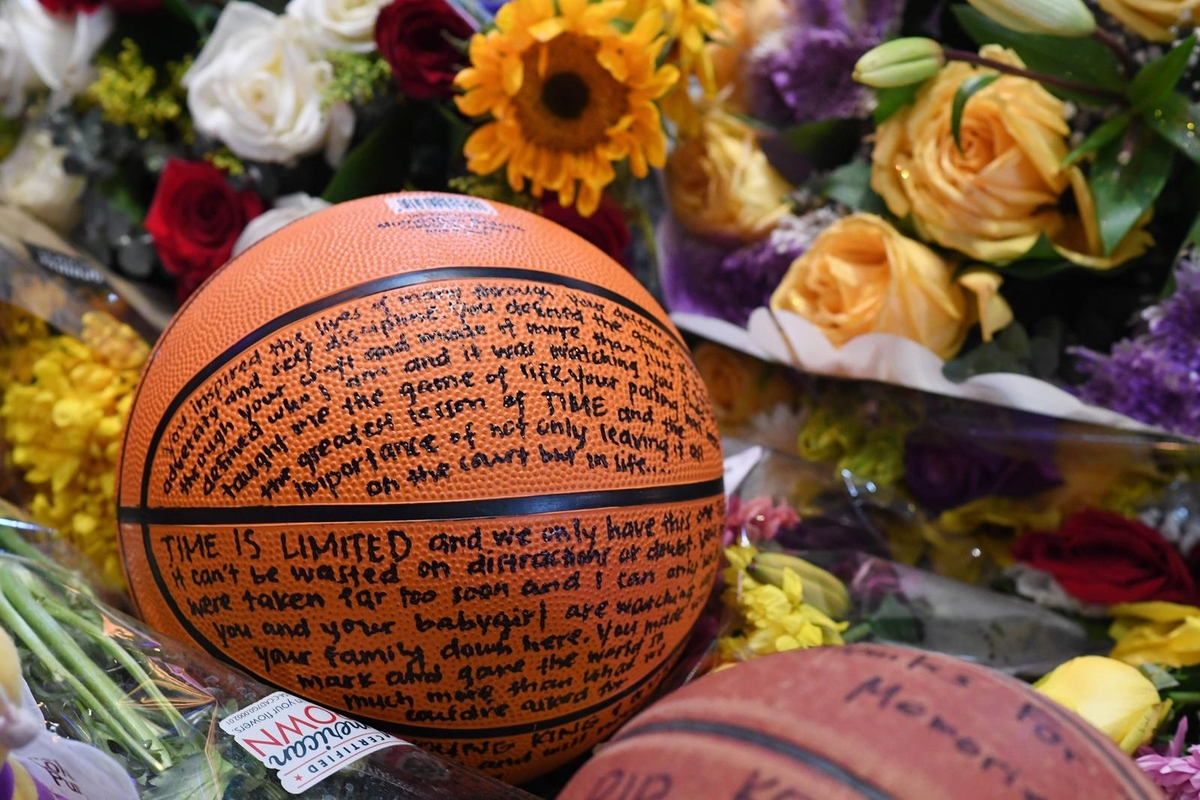 You inspired the lives of many through your
adversity and self discipline. you defined the game
through your craft and made it more than just
defined who I am and it was watching you
taught me the game of life, your passing has
the greatest lesson of TIME and the
importance of not only leaving it on
on the court but in life....
TIME IS LIMITED and we only have this one
it can't be wasted on distractions or doubt. you
were taken far too soon and I can only
you and your babygirl are watching
your family down here. You made
mark and gave the world
much more than what we
could've asked for
YOUNG KING
and
your flowers
american
OWN
CERTIFIED
For
Memori
RIP